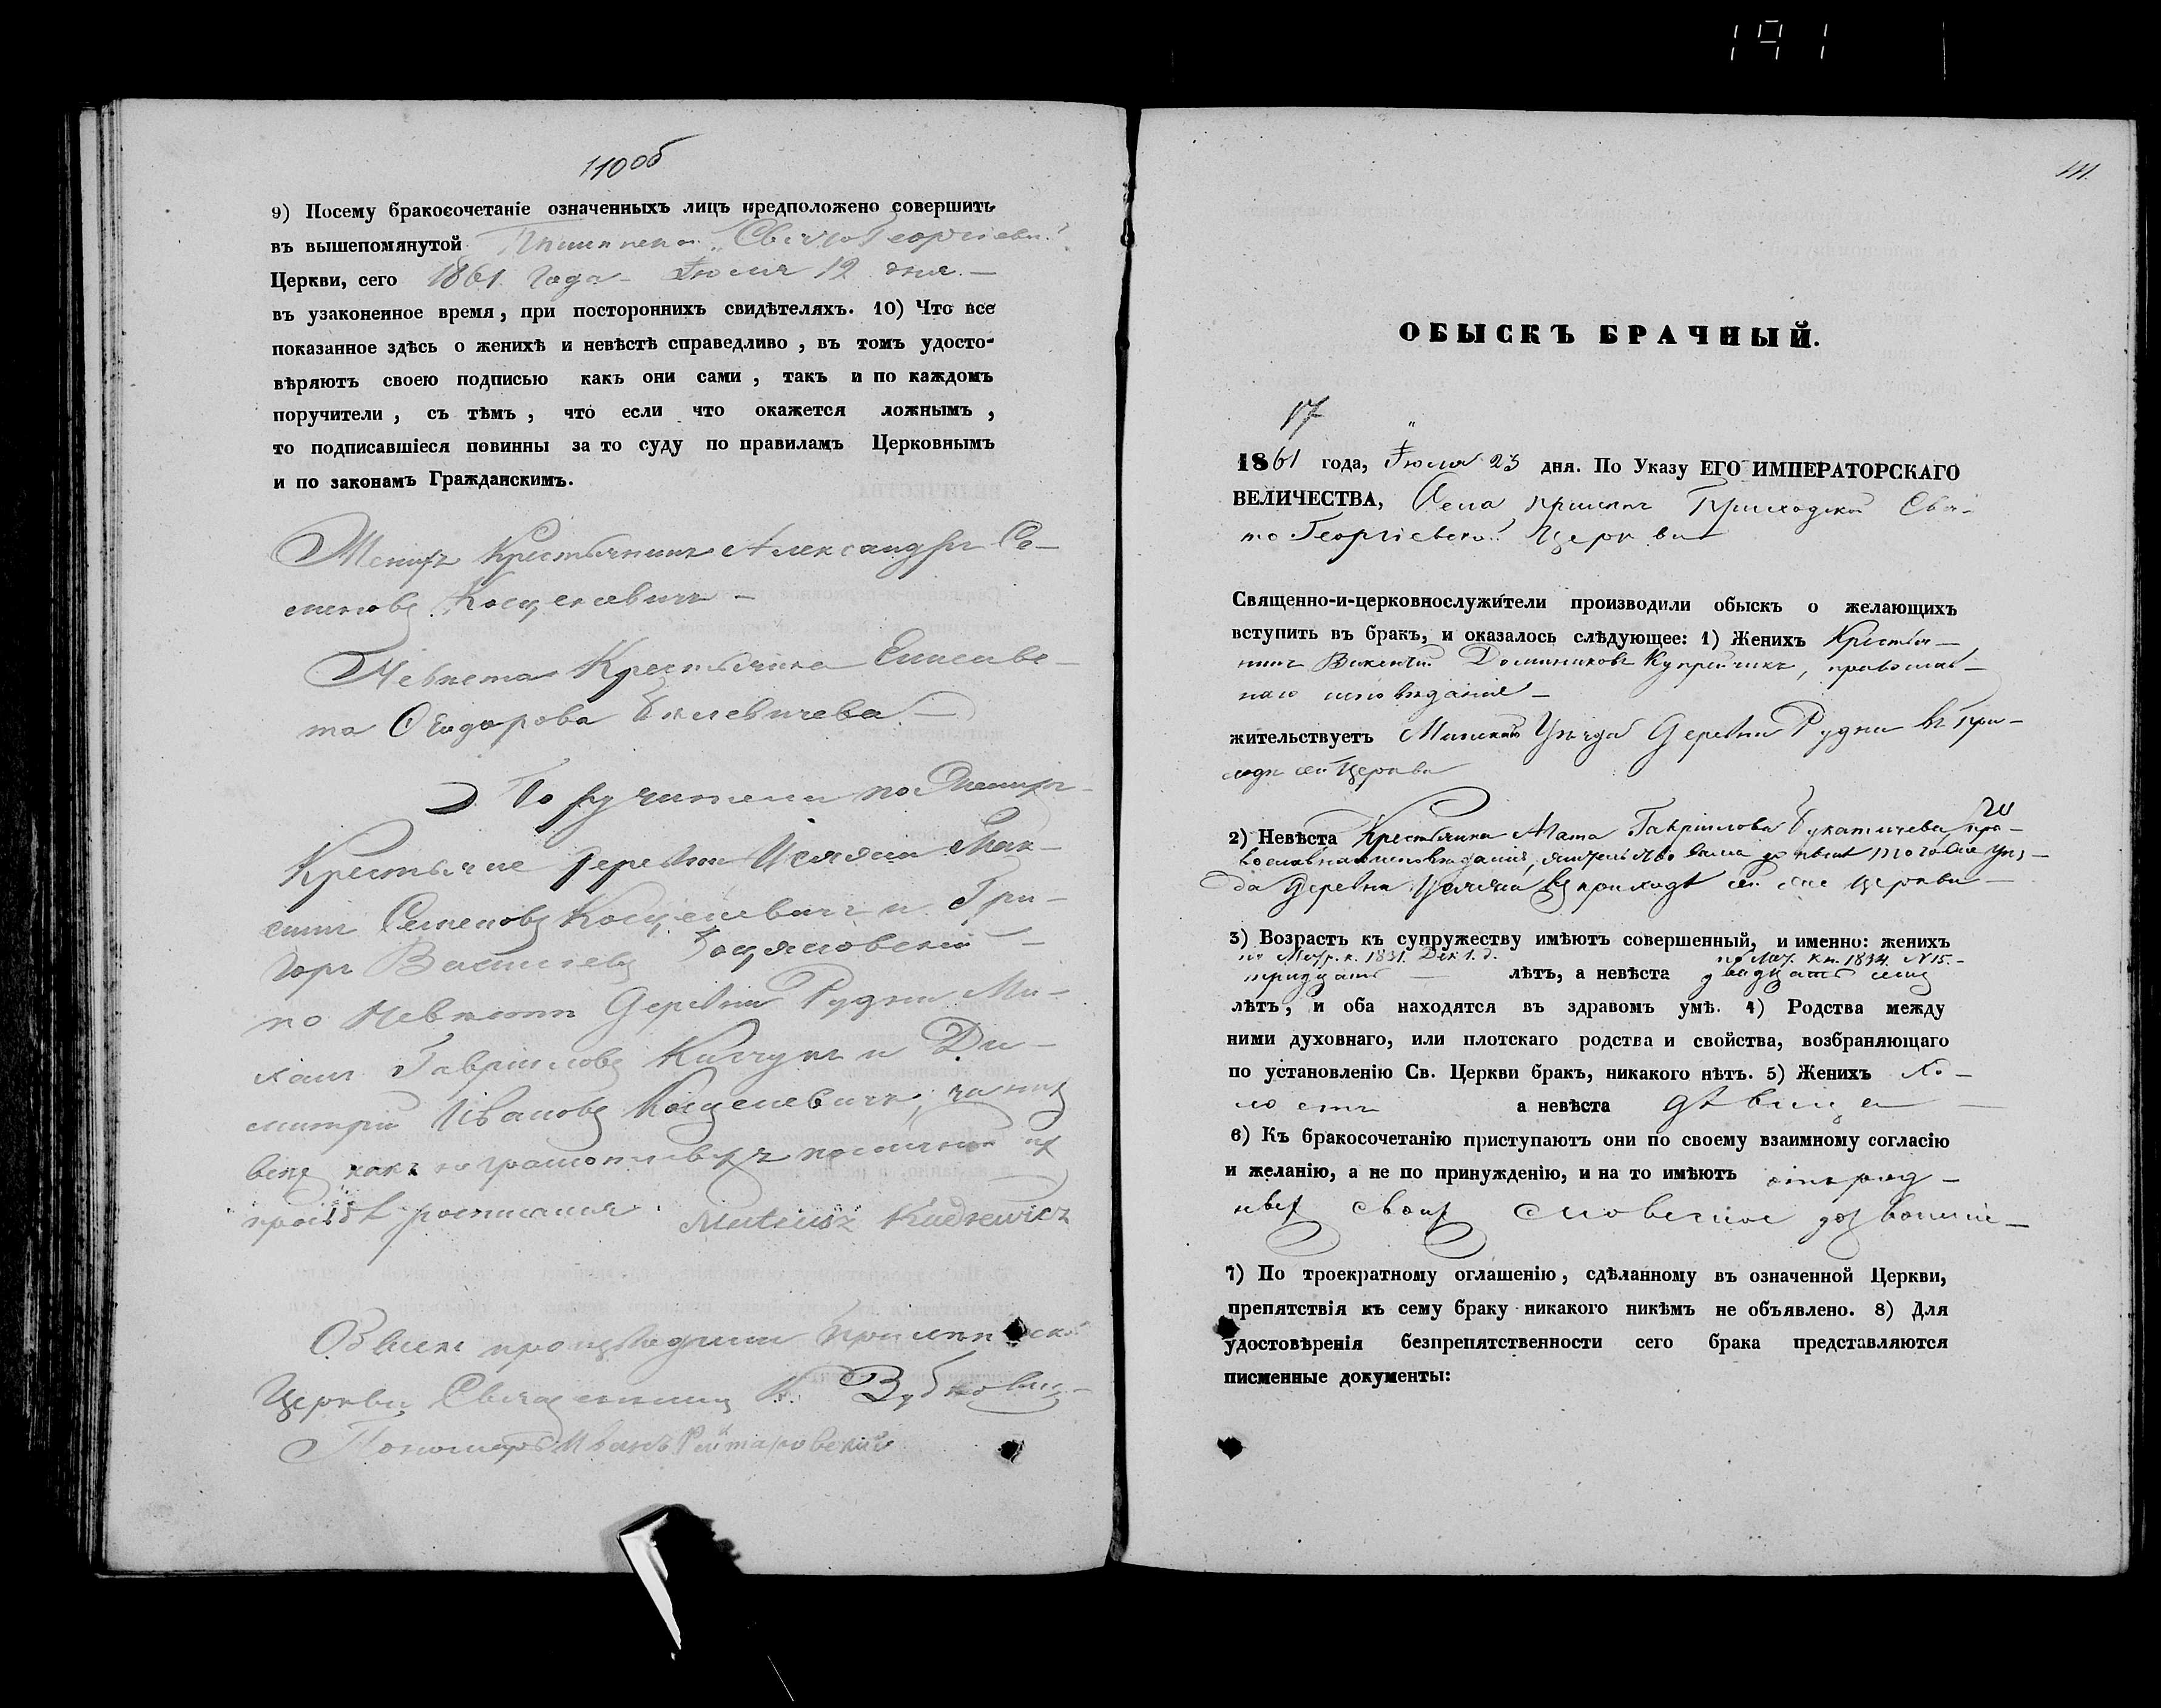 191
110 об
9) Посему бракосочетаніе означенныхъ лицъ предположено совершить
въ вышепомянутой Свято Георгіевской
Церкви, сего 1861 года Іюля 12 дня.
въ узаконенное время, при постороннихъ свидѣтеляхъ. 10) Что все
показанное здѣсь о женихѣ и невѣстѣ справедливо, въ томъ удосто-
вѣряютъ своею подписью какъ они сами, такъ и по каждомъ
поручители, съ тѣмъ, что если что окажется ложнымъ,
то подписавшіеся повинны за то суду по правиламъ Церковнымъ
и по законамъ Гражданскимъ.
Женихъ Крестьянинъ Александръ Се-
меновъ
Невѣста Крестьянка Елисаве-
та Ѳеодорова
Поручители по Женихѣ
Крестьяне деревни Мак-
симъ Семеновъ и Гри-
горъ Васильевъ
по Невѣстѣ Деревни Рудни Ми-
хаилъ Гавріиловъ и Ди-
митрій Ивановъ
какъ неграмотныхъ
росписался Mateusz Kudrewicz
Обыскъ производили
Церкви Священникъ К. Зубковичъ
Пономарь Иванъ
111.
ОБЫСКЪ БРАЧНЫЙ.
17
1861 года, Іюля 23 дня. По Указу ЕГО ИМПЕРАТОРСКАГО
ВЕЛИЧЕСТВА, Села Приходской Свя-
то Георгіевской Церкви
Священно-и-церковнослужители производили обыскъ о желающихъ
вступить въ бракъ, и оказалось слѣдующее: 1) Женихъ Крестья-
нинъ Викентій Доминиковъ Купрейчикъ, православ-
наго исповѣданія
жительствуетъ Минскаго Уѣзда Деревни Рудни въ При-
ходѣ сей Церкви
2) Невѣста Крестьянка Агата Гавріилова пра-
вославнаго исповѣданія, жительствовала до нынѣ того же Уѣз-
да Деревни въ приходѣ сей же Церкви
3) Возрастъ къ супружеству имѣютъ совершенный, и именно: женихъ
по Метр. к. 1831. Дек. 1. д. по Мет. кн. 1834. N 15.
тридцать лѣтъ, а невѣста двадцать семь
лѣтъ, и оба находятся въ здравомъ умѣ. 4) Родства между
ними духовнаго, или плотскаго родства и свойства, возбраняющаго
по установленію Св. Церкви бракъ, никакого нѣтъ. 5) Женихъ Хо-
лостъ а невѣста дѣвица
6) Къ бракосочетанію приступаютъ они по своему взаимному согласію
и желанію, а не по принужденію, и на то имѣютъ отъ род-
ныхъ своихъ словесное дозволеніе
7) По троекратному оглашенію, сдѣланному въ означенной Церкви,
препятствія къ сему браку никакого никѣмъ не объявлено. 8) Для
удостовѣренія безпрепятственности сего брака представляются
писменные документы: